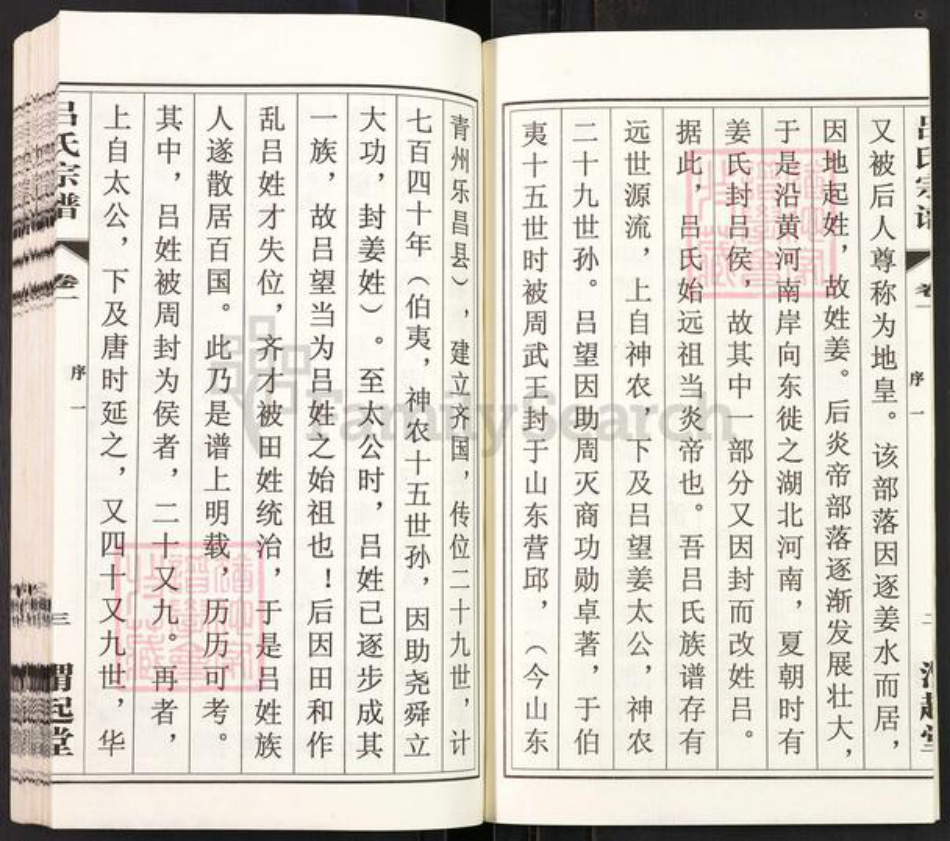 又被后人尊称为地皇。该部落因逐姜水而居，
因地起姓，故姓姜。后炎帝部落逐渐发展壮大，
于是沿黄河南岸向东徙之湖北河南，夏朝时有
姜氏封吕侯，故其中一部分又因封而改姓吕。
据此，吕氏始远祖当炎帝也。吾吕氏族谱存有
远世源流，上自神农，下及吕望姜太公，神农
二十九世孙。吕望因助周灭商功勋卓著，于伯
夷十五世时被周武王封于山东营邱，（今山东
青州乐昌县），建立齐国，传位二十九世，计
七百四十年（伯夷，神农十五世孙，因助尧舜立
大功，封姜姓）。至太公时，吕姓已逐步成其
一族，故吕望当为吕姓之始祖也！后因田和作
乱吕姓才失位，齐才被田姓统治，于是吕姓族
人遂散居百国。此乃是谱上明载，历历可考。
其中，吕姓被周封为侯者，二十又九。再者，
上自太公，下及唐时延之，又四十又九世，华
吕氏宗谱
卷一
序一
三
渭起堂
序一
FamilySearch